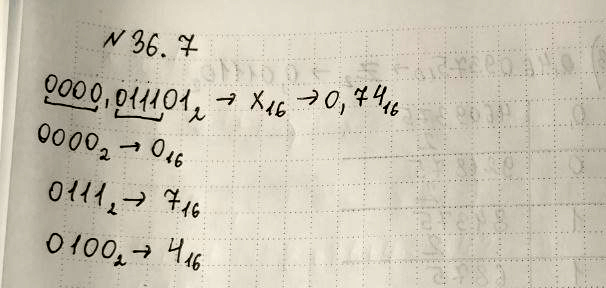 № 36.7
0000,011101₂ → X₁₆ → 0,74₁₆
0000₂ → 0₁₆
0111₂ → 7₁₆
0100₂ → 4₁₆